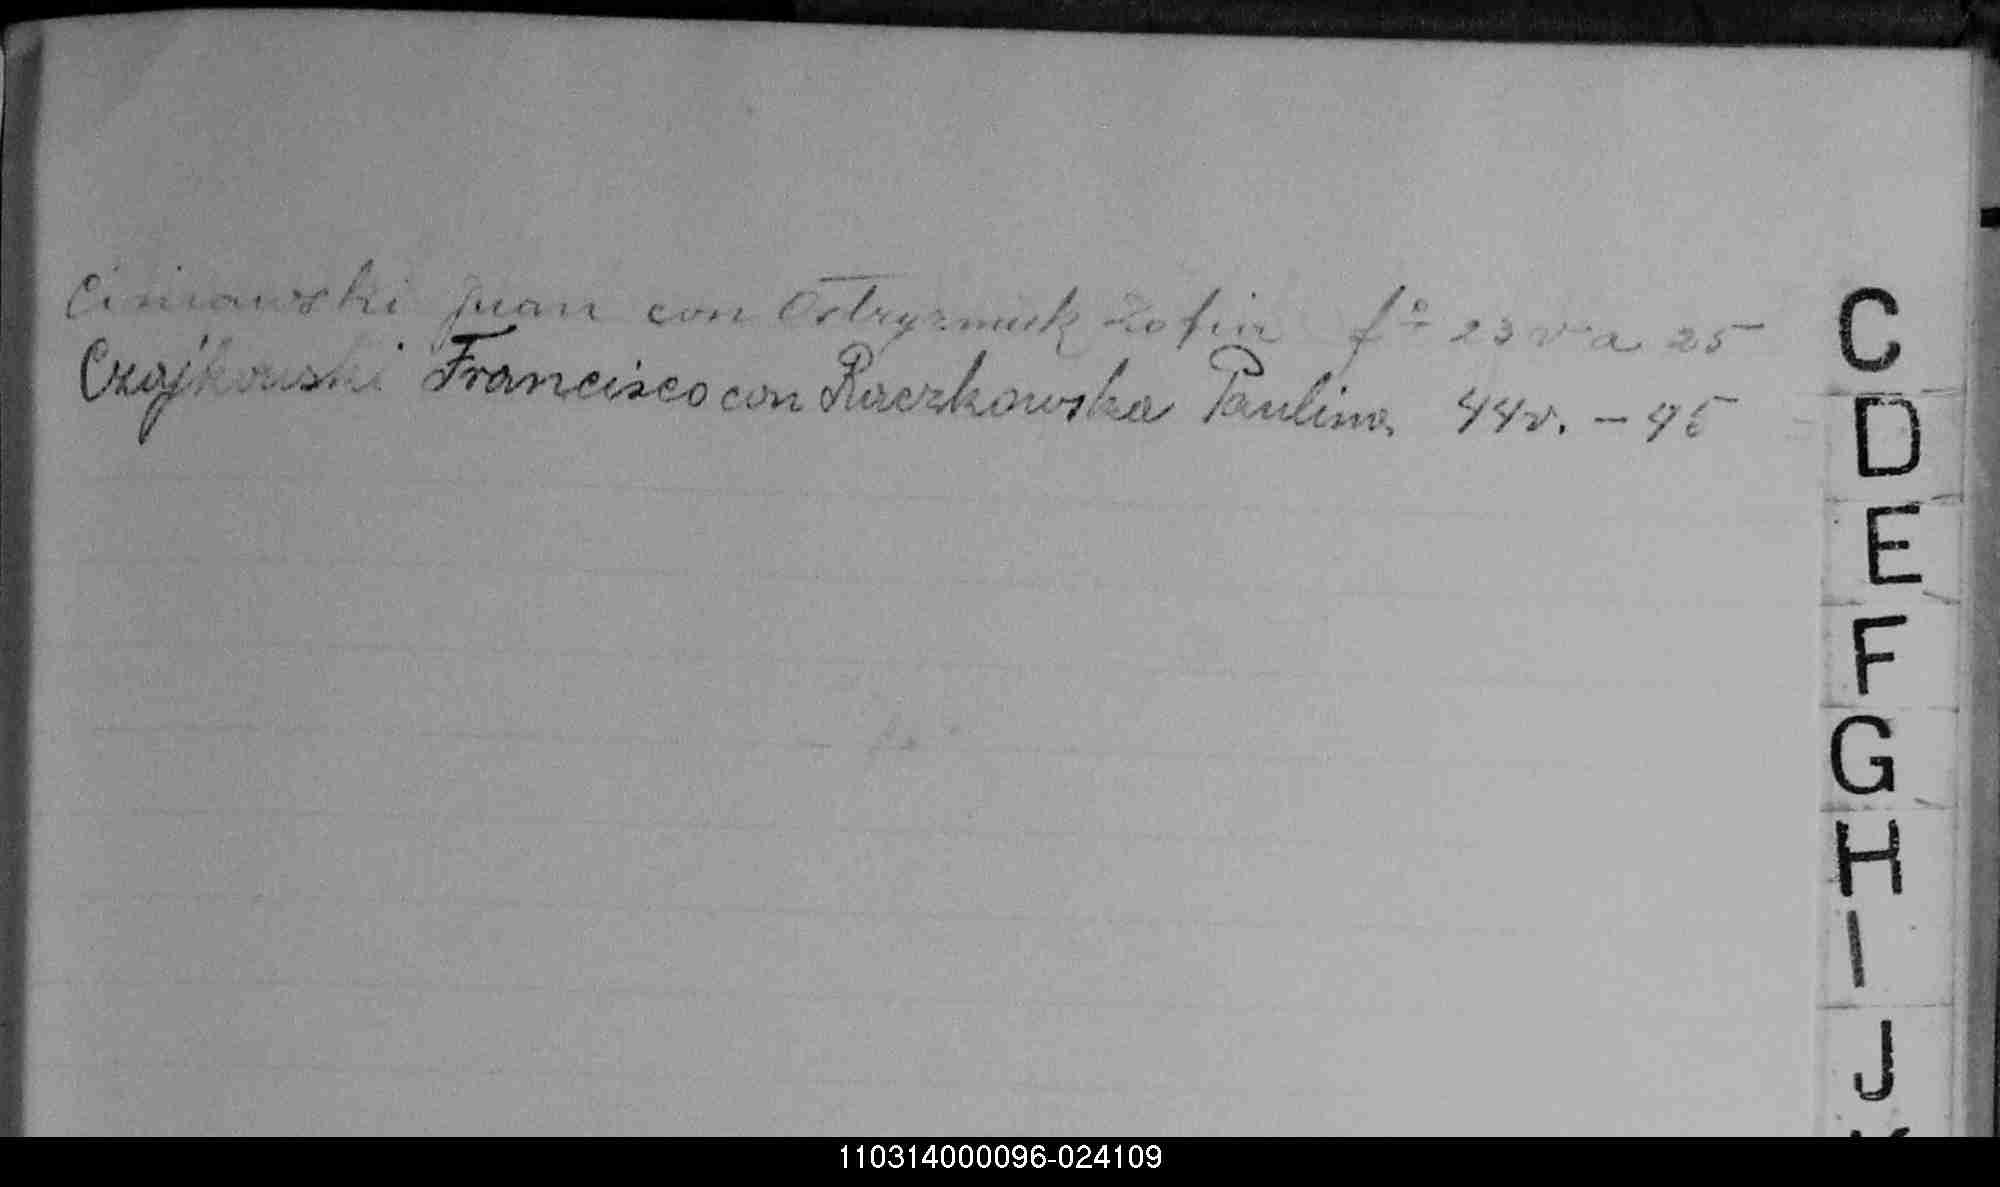 Ciniawski Juan con Ostryzniuk Zofia fº 23 v a 25
Czajkowski Francisco con Raczkowska Paulina 44v. - 45
C
D
E
F
G
H
I
J
110314000096-024109